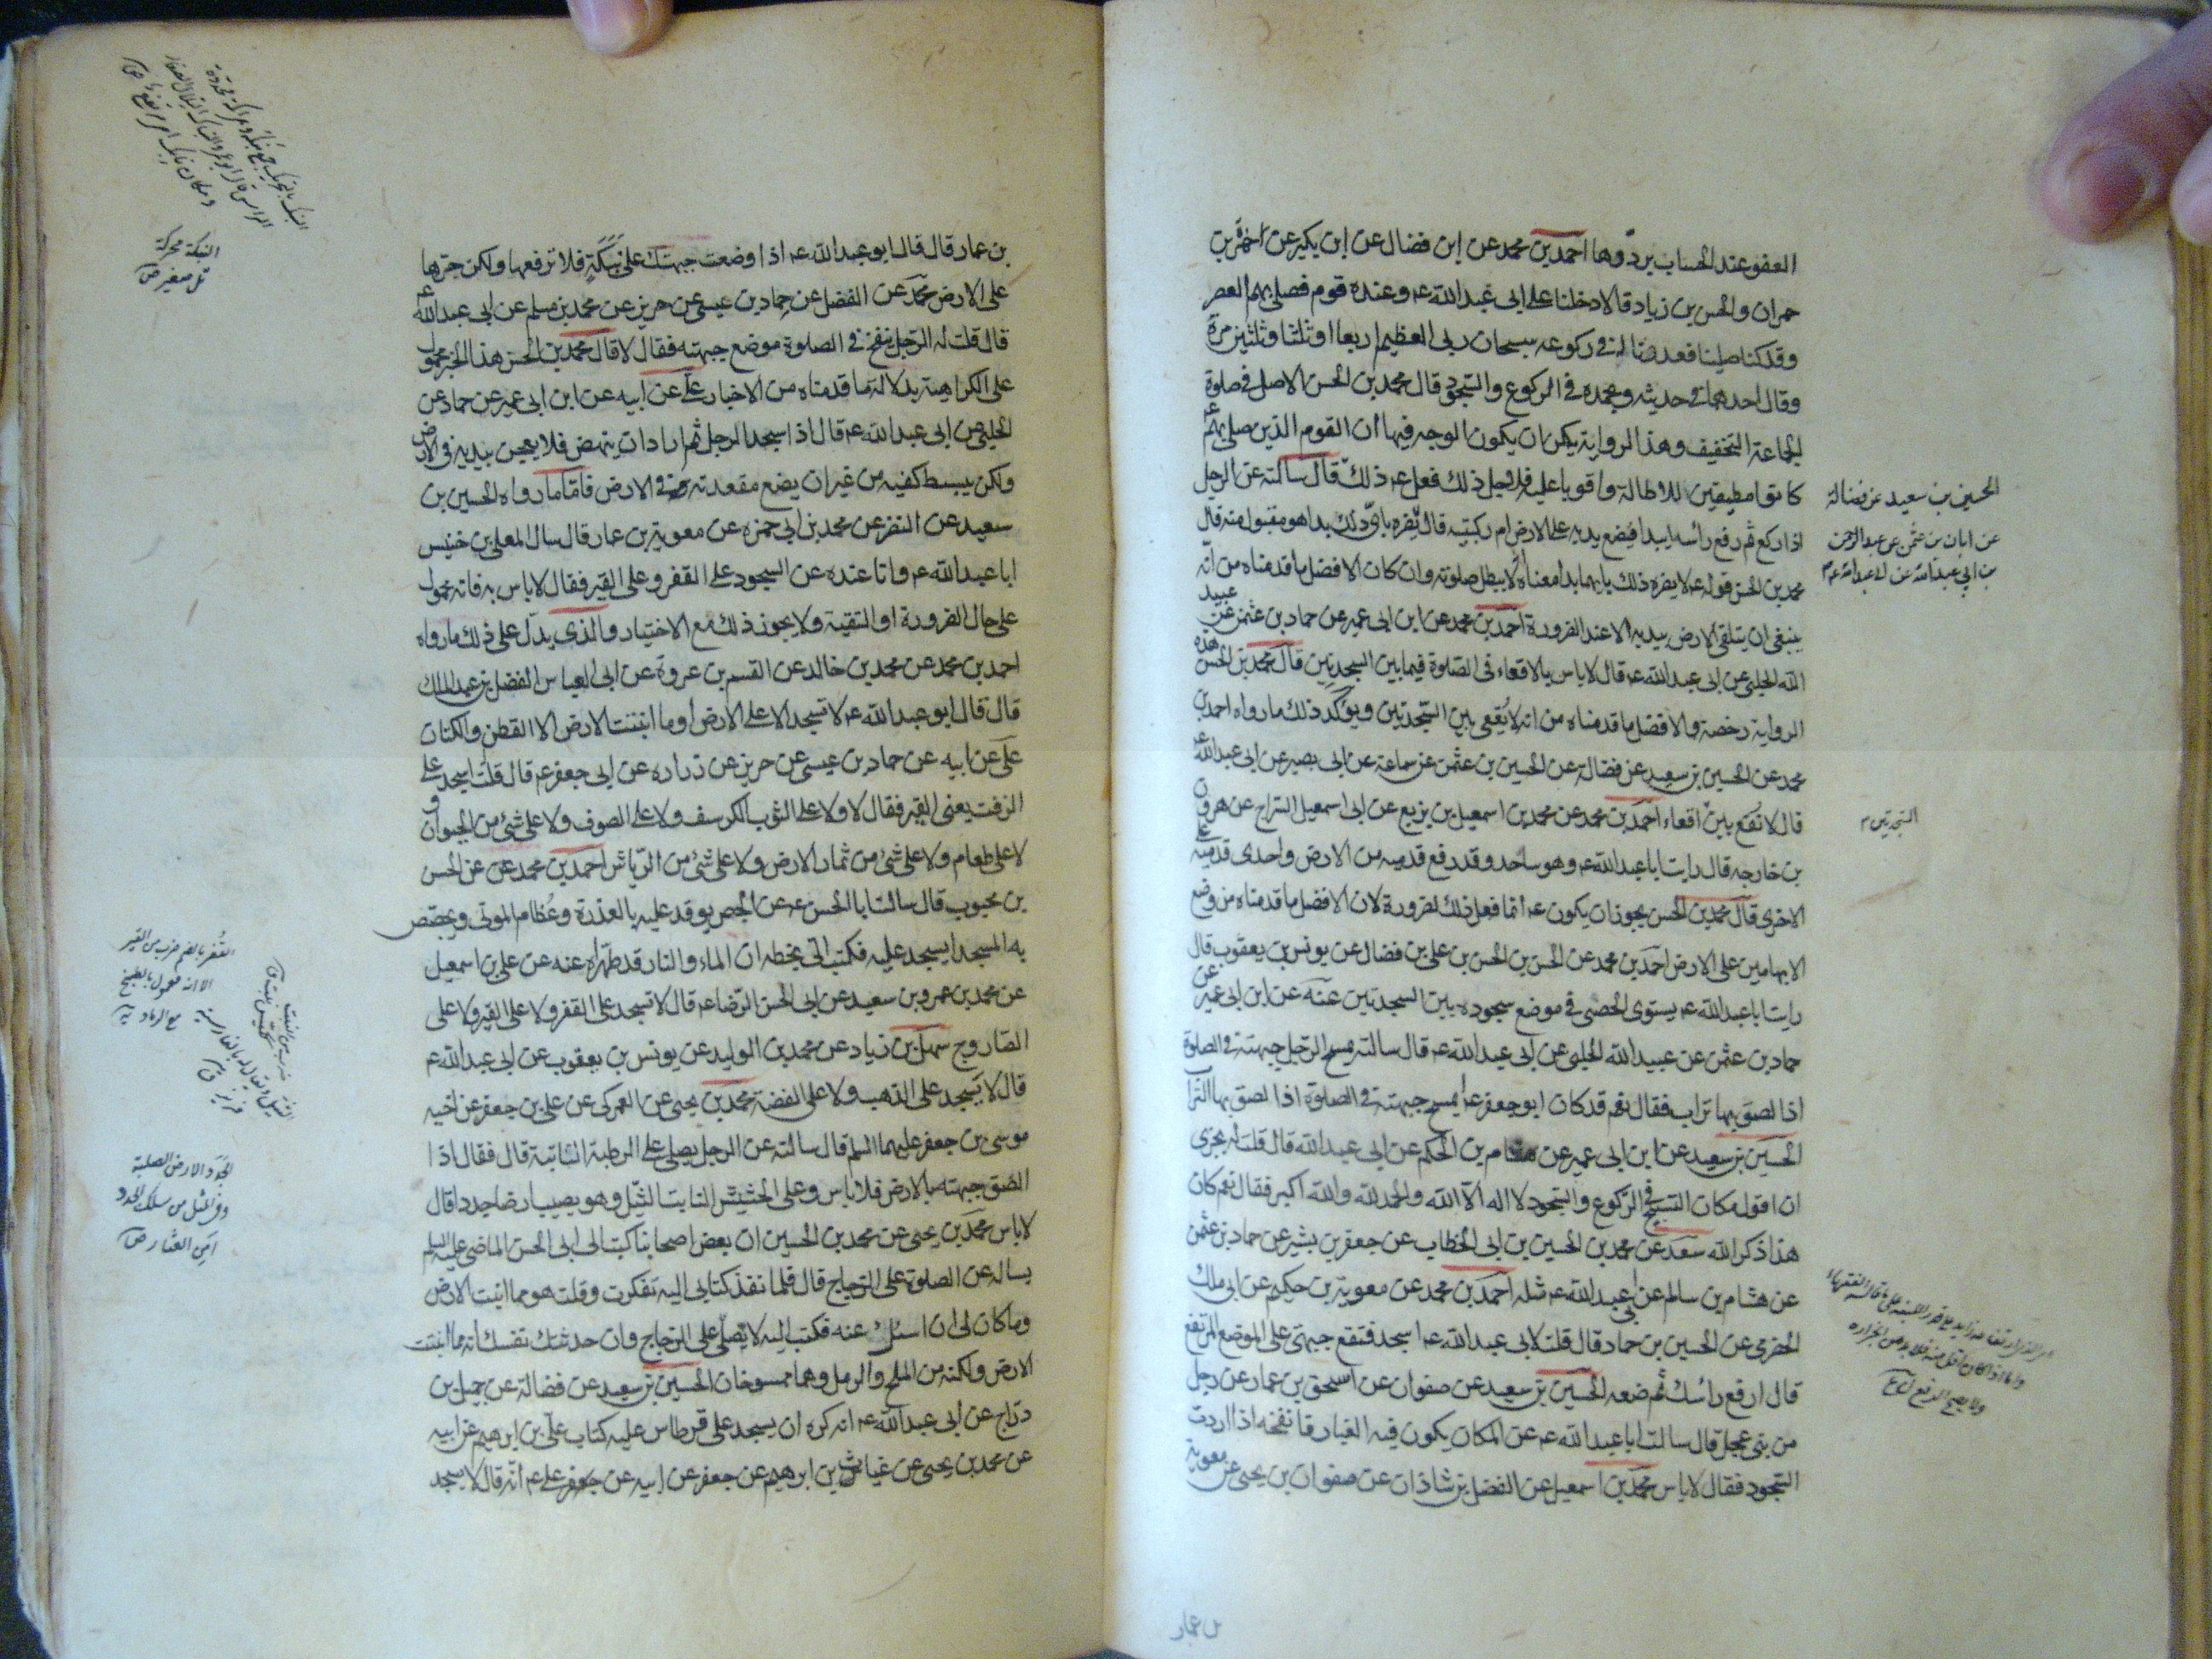 العفو عند الحساب يردوها احمد بن محمد عن ابن فضال عن ابن بكير عن حمزة بن
حمران والحسن بن زياد قالا دخلنا على ابى عبد الله ع وعنده قوم فصلى بهم العصر
وقد كنا صلينا فعددنا له فى ركوعه سبحان ربى العظيم اربعا او ثلثا وثلثين مرة
وقال احدهما فى حديثه وبحمده فى الركوع والسجود قال محمد بن الحسن الاصل فى صلوة
الجماعة التخفيف وهذا الرواية يمكن ان يكون الوجه فيها ان القوم الذين صلى بهم ع
كانوا مطيقين للاطالة واقويا عليه فلاجل ذلك فعل ع ذلك قال سالته عن الرجل
اذا ركع ثم رفع رأسه ايبدا فيضع يديه على الارض ام ركبتيه قال يضره باى ذلك بدا هو مقبول منه قال
محمد بن الحسن قوله ع لا يضره ذلك بايهما بدا معناه لا يبطل صلوته وان كان الافضل ما قدمناه من انه
ينبغى ان يتلقى الارض بيديه الا عند الضرورة احمد بن محمد عن ابن ابى عمير عن حماد بن عثمن عن عبيد
الله الحلبى عن ابى عبد الله ع قال لا باس بالاقعاء فى الصلوة فيما بين السجدتين قال محمد بن الحسن هذه
الرواية رخصة والافضل ما قدمناه من انه لا يقعى بين السجدتين ويؤكد ذلك ما رواه احمد بن
محمد عن الحسين بن سعيد عن فضالة عن الحسين بن عثمن عن سماعة عن ابى بصير عن ابى عبد الله ع
قال لا تقع بين اقعاء احمد بن محمد عن محمد بن اسمعيل بن بزيع عن ابى اسمعيل السراج عن هرون
بن خارجه قال رايت ابا عبد الله ع وهو ساجد وقد رفع قدميه من الارض واحدى قدميه على
الاخرى قال محمد بن الحسن يجوز ان يكون ع انما فعل ذلك لضرورة لان الافضل ما قدمناه من وضع
الابهامين على الارض احمد بن محمد عن الحسن بن الحسن بن على بن فضال عن يونس بن يعقوب قال
رايت ابا عبد الله ع يستوى الحصى فى موضع سجوده بين السجدتين عنه عن ابن ابى عمير عن
حماد بن عثمن عن عبيد الله الحلبى عن ابى عبد الله ع قال سالته يمسح الرجل جبهته فى الصلوة
اذا لصق بها تراب فقال نعم قد كان ابو جعفر ع يمسح جبهته فى الصلوة اذا لصق بها التراب
الحسين بن سعيد عن ابن ابى عمير عن هشام بن الحكم عن ابى عبد الله قال قلت له يجزى
ان اقول مكان التسبيح فى الركوع والسجود لا اله الا الله والحمد لله والله اكبر فقال نعم كان
هذا ذكر الله سعد عن محمد بن الحسين بن ابى الخطاب عن جعفر بن بشير عن حماد بن عثمن
عن هشام بن سالم عن ابى عبد الله ع مثله احمد بن محمد عن معوية بن حكيم عن ابى ملك
الحضرمى عن الحسين بن حماد قال قلت لابى عبد الله ع اسجد فتقع جبهتى على الموضع المرتفع
قال ارفع رأسك ثم ضعه الحسين بن سعيد عن صفوان عن اسحق بن عمار عن رجل
من بنى عجل قال سالت ابا عبد الله ع عن المكان يكون فيه الغبار فانفخه اذا اردت
السجود فقال لا باس محمد بن اسمعيل عن الفضل بن شاذان عن صفوان بن يحيى عن معوية
الحسين بن سعيد عن فضالة
عن ابان بن عثمن عن عبد الرحمن
بن ابى عبد الله عن ابى عبد الله ع م
السجدتين م
بن عمار
بن عمار قال قال ابو عبد الله ع اذا وضعت جبهتك على نبكة فلا ترفعها ولكن جرها
على الارض محمد عن الفضل عن حماد بن عيسى عن حريز عن محمد بن مسلم عن ابى عبد الله ع
قال قلت له الرجل ينفخ فى الصلوة موضع جبهته فقال لا قال محمد بن الحسن هذا الخبر محمول
على الكراهية بدلالة ما قدمناه من الاخبار على عن ابيه عن ابن ابى عمير عن حماد عن
الحلبى عن ابى عبد الله ع قال اذا سجد الرجل ثم اراد ان ينهض فلا يعجن بيديه فى الارض
ولكن يبسط كفيه من غير ان يضع مقعدته فى الارض فاما ما رواه الحسين بن
سعيد عن النضر عن محمد بن ابى حمزه عن معوية بن عمار قال سال المعلى بن خنيس
ابا عبد الله ع وانا عنده عن السجود على القفر وعلى القير فقال لا باس به فانه محمول
على حال الضرورة او التقية ولا يجوز ذلك مع الاختيار والذى يدل على ذلك ما رواه
احمد بن محمد عن محمد بن خالد عن القسم بن عروة عن ابى العباس الفضل بن عبد الملك
قال قال ابو عبد الله ع لا تسجد الا على الارض او ما انبتت الارض الا القطن والكتان
على عن ابيه عن حماد بن عيسى عن حريز عن زراره عن ابى جعفر ع قال قلت اسجد على
الزفت يعنى القير فقال لا ولا على الثوب الكرسف ولا على الصوف ولا على شئ من الحيوان و
لا على طعام ولا على شئ من ثمار الارض ولا على شئ من الرياش احمد بن محمد عن عن الحسن
بن محبوب قال سالت ابا الحسن ع عن الجص يوقد عليه بالعذرة وعظام الموتى ويجصص
به المسجد ايسجد عليه فكتب الى بخطه ان الماء والنار قد طهراه عنه عن على بن اسمعيل
عن محمد بن عمرو بن سعيد عن ابى الحسن الرضا ع قال لا تسجد على القفر ولا على القير ولا على
الصاروج سهل بن زياد عن محمد بن الوليد عن يونس بن يعقوب عن ابى عبد الله ع
قال لا تسجد على الذهب ولا على الفضة محمد بن يحيى عن العمركى عن على بن جعفر عن اخيه
موسى بن جعفر عليهما السلم قال سالته عن الرجل يصلى على الرطبة النابتة قال فقال اذا
الصق جبهته بالارض فلا باس وعلى الحشيش النابت الثيل وهو يصيب ارضا جددا قال
لا باس محمد بن يحيى عن محمد بن الحسين ان بعض اصحابنا كتب الى ابى الحسن الماضى عليه السلم
يساله عن الصلوة على الزجاج قال فلما نفذ كتابى اليه تفكرت وقلت هو مما انبتت الارض
وما كان لى ان اسئل عنه فكتب اليه لا تصل على الزجاج وان حدثتك نفسك انه مما انبتت
الارض ولكنه من الملح والرمل وهما ممسوخان الحسين بن سعيد عن فضالة عن جميل بن
دراج عن ابى عبد الله ع انه كره ان يسجد على قرطاس عليه كتاب على بن ابرهيم عن ابيه
عن محمد بن يحيى عن غياث بن ابرهيم عن جعفر عن ابيه عن على ع انه قال لا يسجد
النبكة محركة
تل صغير ص
القفر بالضم ضرب من القير
الا انه معمول بالطبخ
مع الرماد
الجدد الارض الصلبة
وفى المثل من سلك الجدد
امن العثار ص